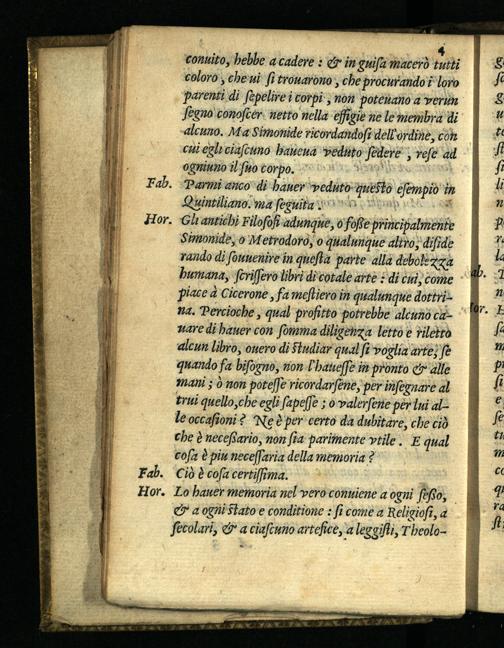 4
conuito, hebbe a cadere : & in guiſa macerò tutti
coloro, che ui ſi trouarono, che procurando i loro
parenti di ſepelire i corpi, non poteuano a verun
ſegno conoſcer netto nella effigie ne le membra di
alcuno. Ma Simonide ricordandoſi dell'ordine, con
cui egli ciaſcuno haueua veduto ſedere, reſe ad
ogniuno il ſuo corpo.
Fab. Parmi anco di hauer veduto queſto eſempio in
Quintiliano. ma ſeguita.
Hor. Gli antichi Filoſofi adunque, o foſſe principalmente
Simonide, o Metrodoro, o qualunque altro, diſide
rando di ſouuenire in queſta parte alla debolezza
humana, ſcriſſero libri di cotale arte : di cui, come
piace à Cicerone, fa meſtiero in qualunque dottri-
na. Percioche, qual profitto potrebbe alcuno ca-
uare di hauer con ſomma diligenza letto e riletto
alcun libro, ouero di ſtudiar qual ſi voglia arte, ſe
quando fa biſogno, non l'haueſſe in pronto & alle
mani ; ò non poteſſe ricordarſene, per inſegnare al
trui quello, che egli ſapeſſe ; o valerſene per lui al-
le occaſioni ? Ne è per certo da dubitare, che ciò
che è neceſſario, non ſia parimente vtile. E qual
coſa è piu neceſſaria della memoria ?
Fab. Ciò è coſa certiſſima.
Hor. Lo hauer memoria nel vero conuiene a ogni ſeſſo,
& a ogni ſtato e conditione : ſi come a Religioſi, a
ſecolari, & a ciaſcuno artefice, a leggiſti, Theolo-